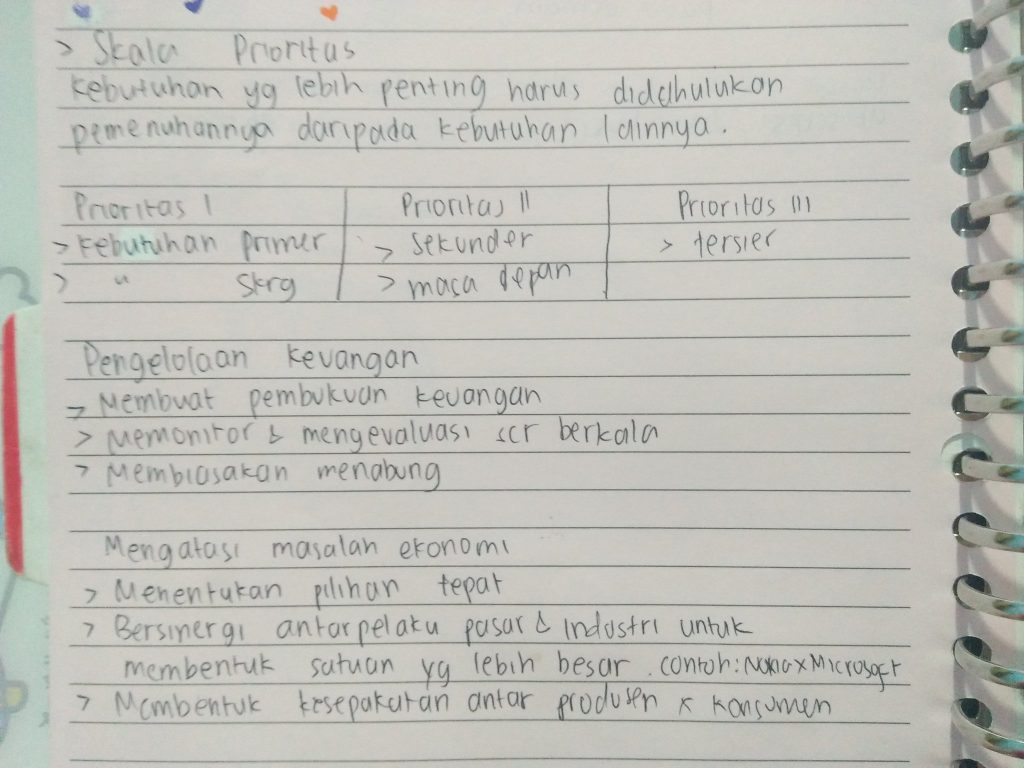 > Skala Prioritas
kebutuhan yg lebih penting harus didahulukan
pemenuhannya daripada kebutuhan lainnya.
Prioritas I | Prioritas II | Prioritas III
> kebutuhan primer | > sekunder | > tersier
> " skrg | > masa depan
Pengelolaan keuangan
> Membuat pembukuan keuangan
> Memonitor & mengevaluasi scr berkala
> Membiasakan menabung
Mengatasi masalah ekonomi
> Menentukan pilihan tepat
> Bersinergi antarpelaku pasar & industri untuk
membentuk satuan yg lebih besar. contoh: Nokia x Microsoft
> Membentuk kesepakatan antar produsen x konsumen